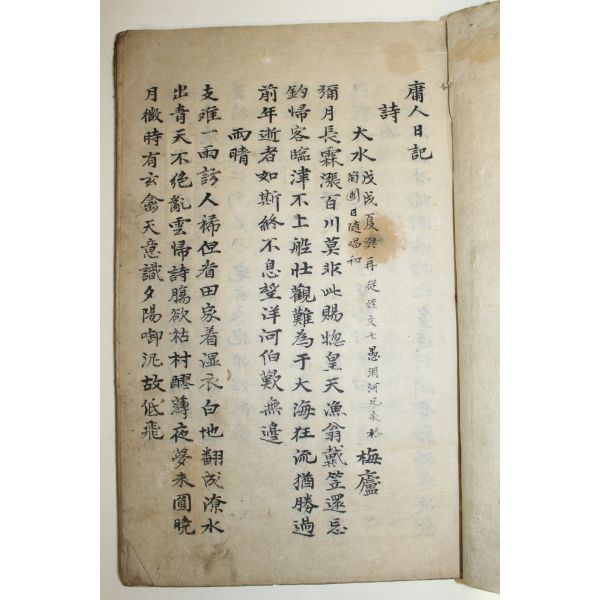 庸人日記
詩
大水 戊戌夏與再從姪文士愚淵河兄永裕 梅廬
菊圃日隨唱和
彌月長霖漲百川莫非此賜惣皇天漁翁戴笠還忘
釣帰客臨津不上舩壯觀難為于大海狂流猶勝過
前年逝者如斯終不息望洋河伯歎無邊
雨晴
支难一雨訪人稀但看田家着湿衣白地翻成潦水
出青天不絶亂雲帰詩膓欲枯村醪薄夜夢未圓曉
月微時有玄禽天意識夕陽啣泥故低飛